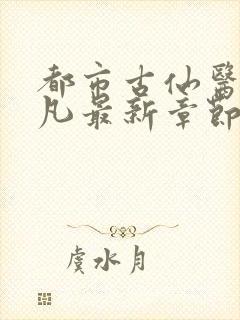 都市古仙醫
凡最新章節
虞水月